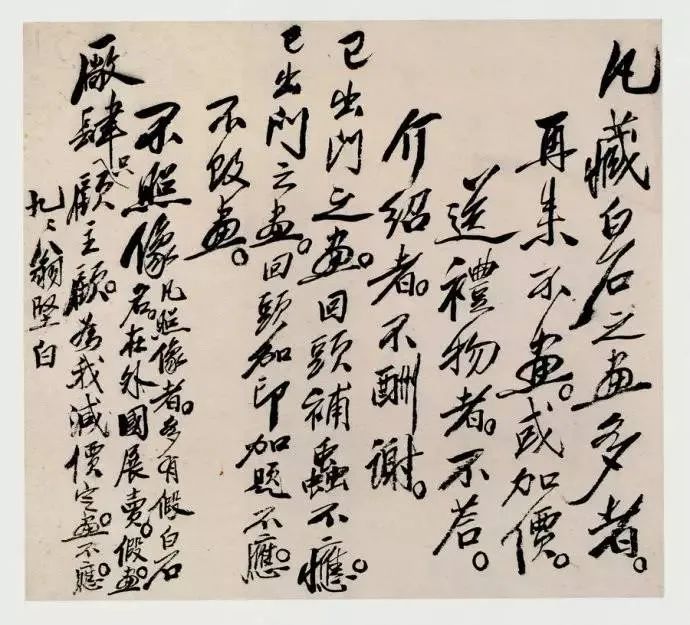 凡藏白石之畫多者。
再來不畫。或加價。
送禮物者。不答。
介紹者。不酬謝。
已出門之畫。回頭補蟲不應。
已出門之畫。回頭加印加題不應。
不改畫。
不照像 凡照像者。多有假白石
名。在外國展賣。假畫。
廠肆只顧主顧。為我減價定畫。不應。
九二翁堅白